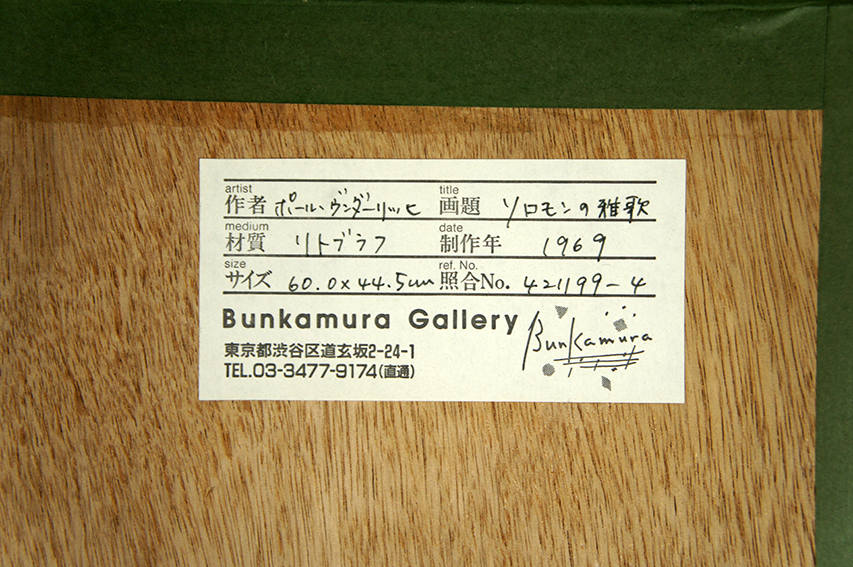 artist title
作者 ポール・ヴンダーリッヒ 画題 ソロモンの雅歌
medium date
材質 リトグラフ 制作年 1969
size ref. No.
サイズ 60.0×44.5cm 照合No. 421199-4
Bunkamura Gallery
Bunkamura
東京都渋谷区道玄坂2-24-1
TEL.03-3477-9174(直通)